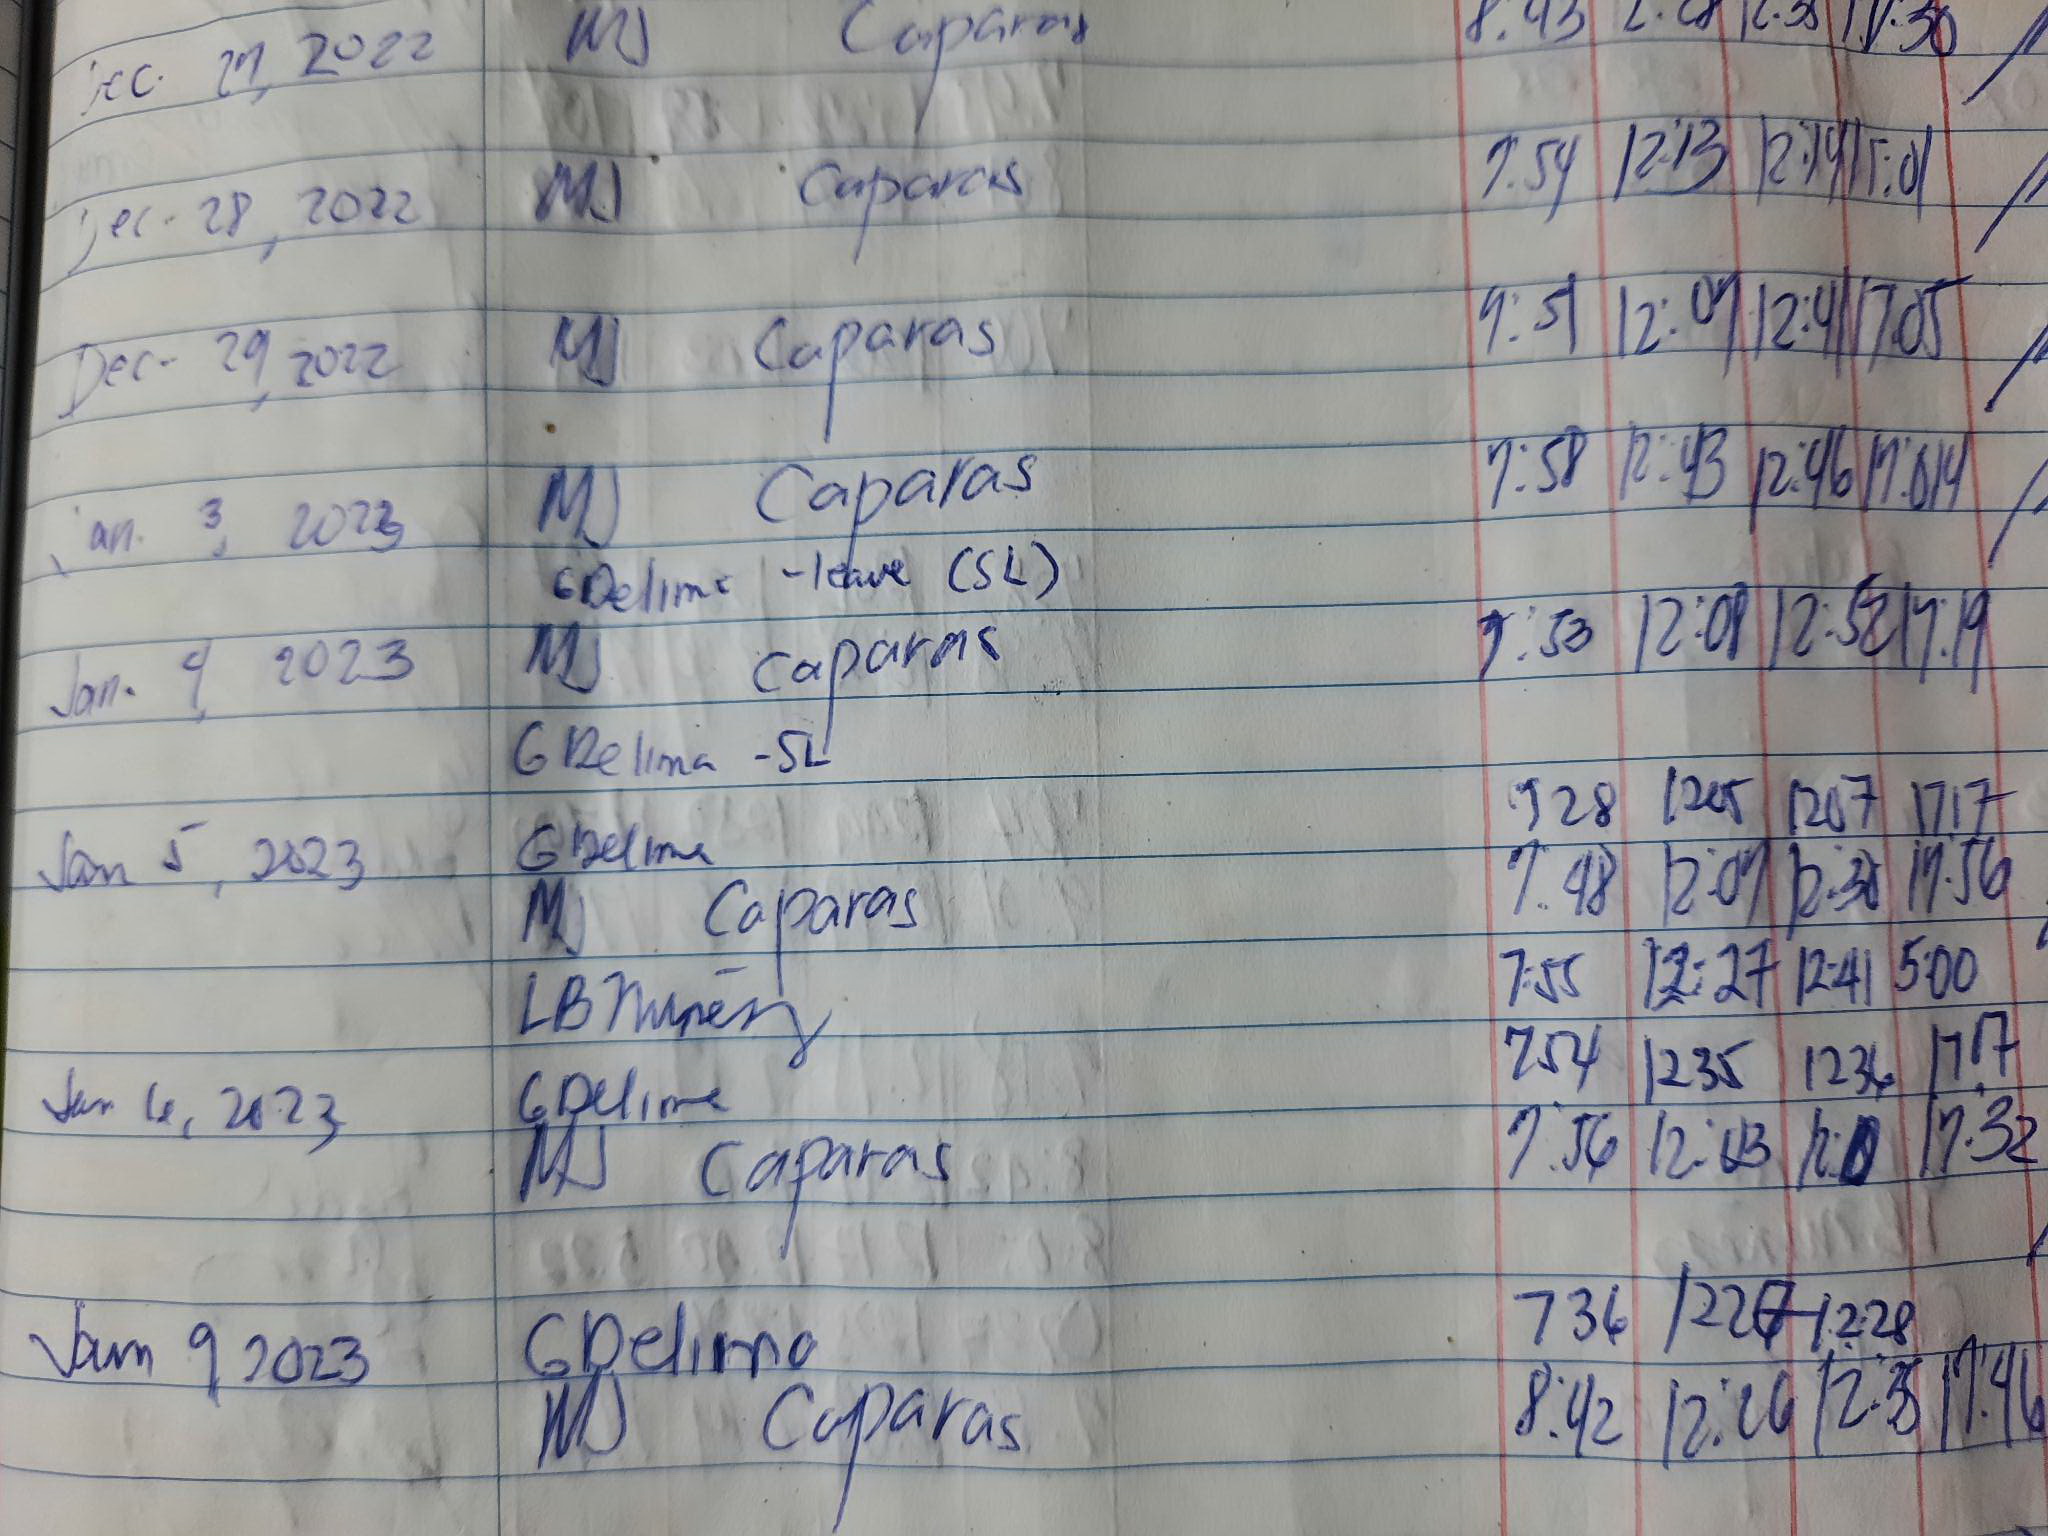 Dec. 27, 2022 MJ Caparas 8:43 12:28 12:35 17:30
Dec. 28, 2022 MJ Caparas 7:54 12:13 12:14 17:01
Dec. 29, 2022 MJ Caparas 7:51 12:07 12:41 17:05
Jan. 3, 2023 MJ Caparas 7:58 12:43 12:46
GDelima - leave (SL)
Jan. 4, 2023 MJ Caparas 7:53 12:08 12:52 17:19
GDelima - SL
Jan 5, 2023 GDelima 728 1205 1207 1717
MJ Caparas 7:48 12:07 12:38 17:56
LB Nuñez 7:55 12:27 12:41 5:00
Jan 6, 2023 GDelima 754 1235 1236 1717
MJ Caparas 7:56 17:32
Jan 9, 2023 GDelima 736 1228
MJ Caparas 8:42 12:26 17:46